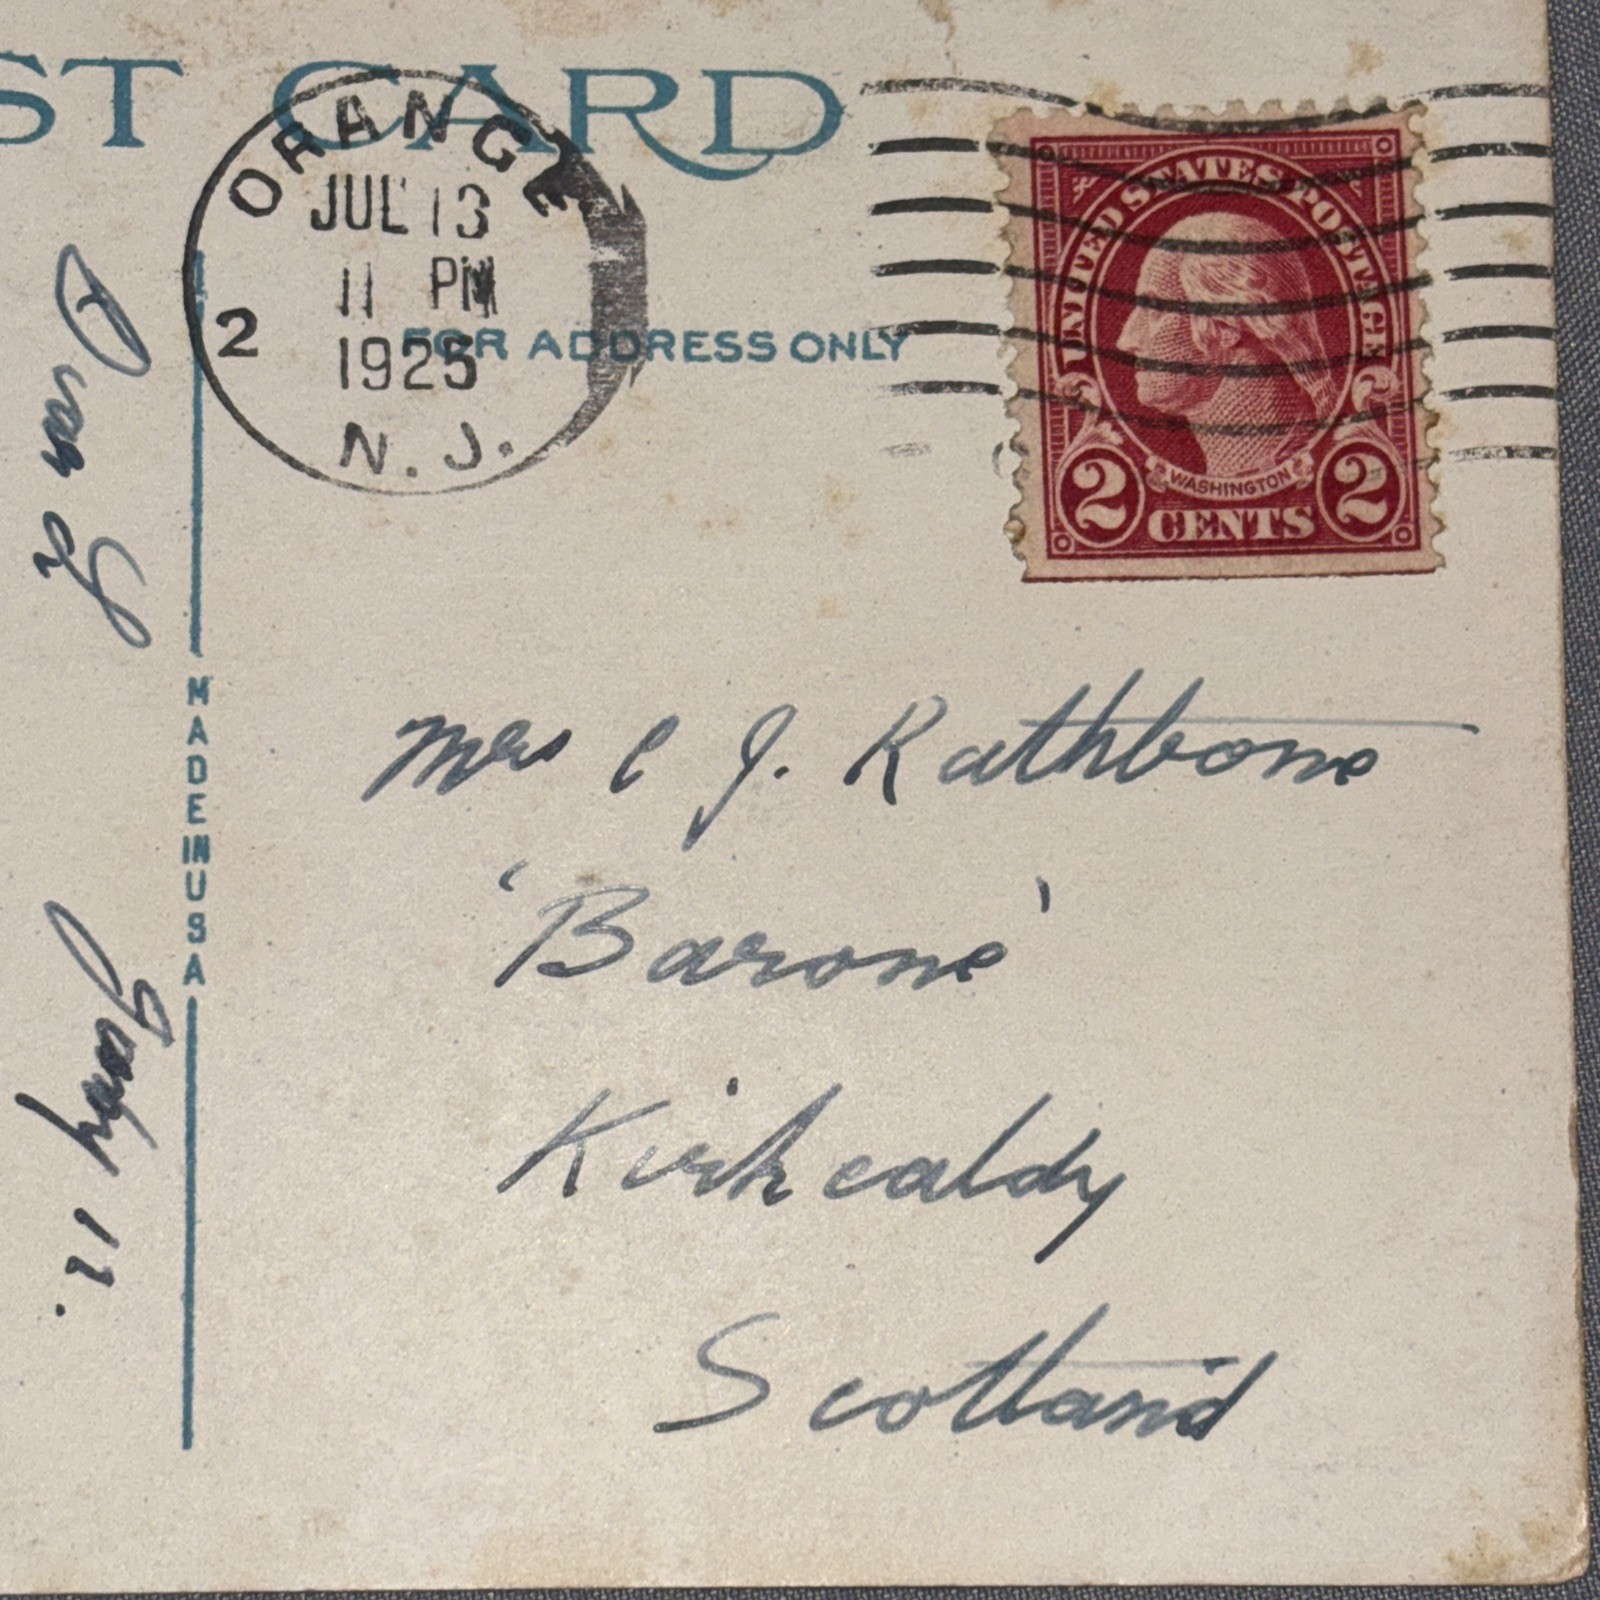 ST CARD
ORANGE
JUL 13
11 PM
1925
2
N. J.
FOR ADDRESS ONLY
UNITED STATES POSTAGE
WASHINGTON
2 CENTS 2
MADE IN USA
Mrs C J. Rathbone
'Barone'
Kirkcaldy
Scotland
11.